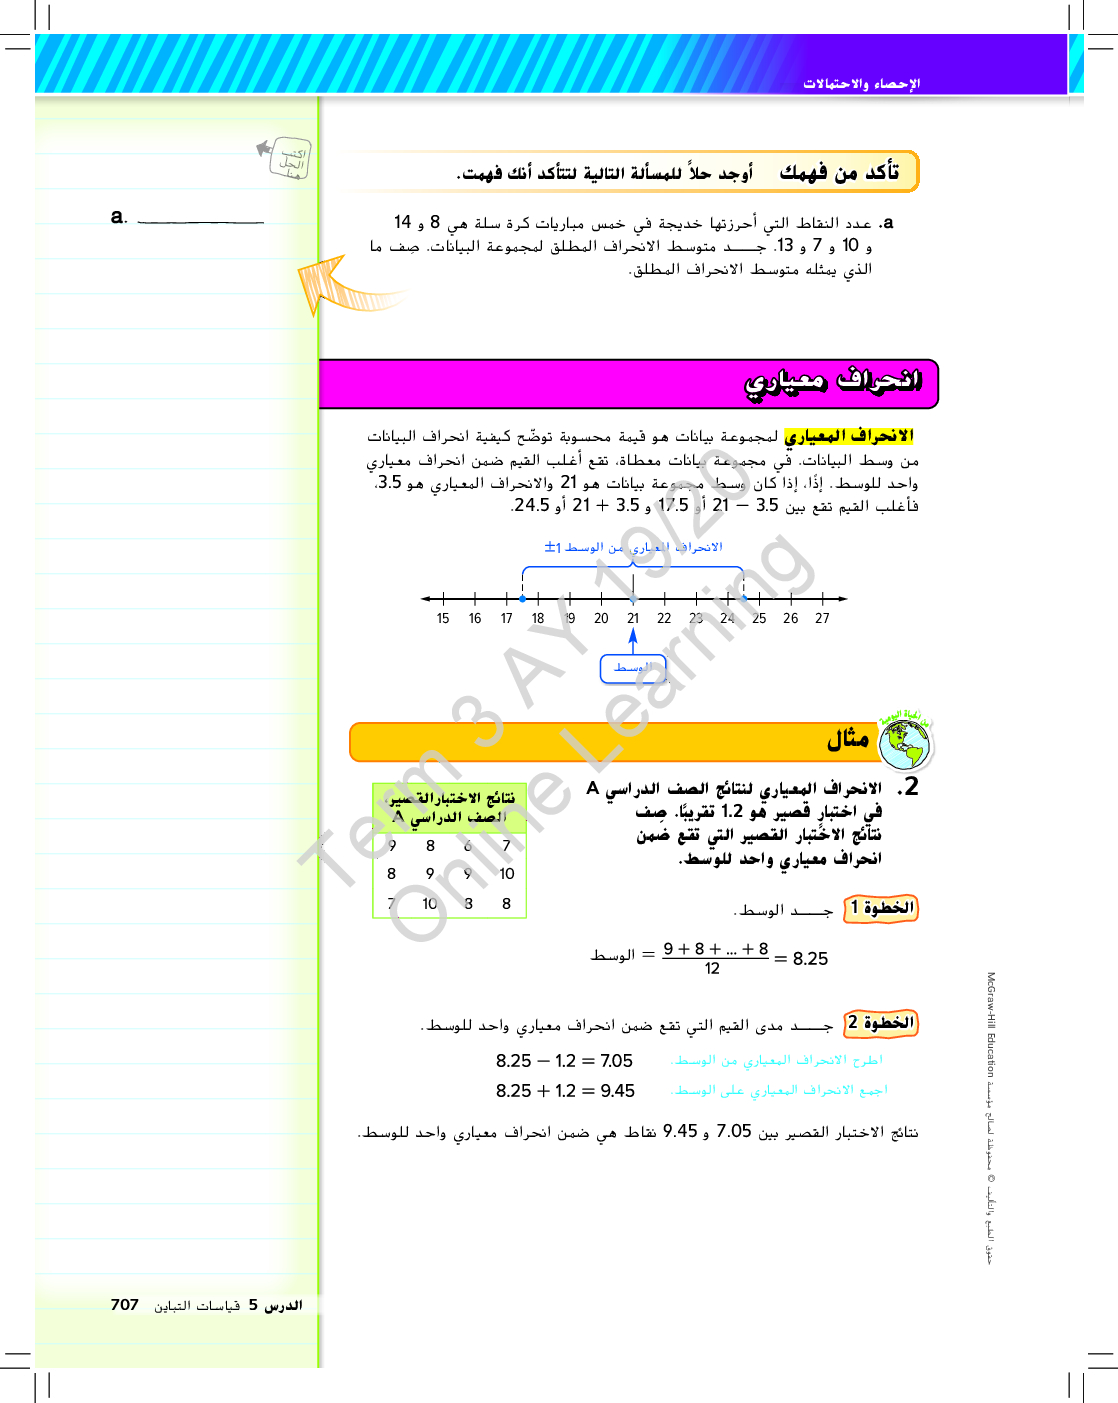 الإحصاء والاحتمالات
اكتب
الحل
هنا
تأكد من فهمك أوجد حلاً للمسألة التالية لتتأكد أنك فهمت.
a. عدد النقاط التي أحرزتها خديجة في خمس مباريات كرة سلة هي 8 و 14
و 10 و 7 و 13. جـــد متوسط الانحراف المطلق لمجموعة البيانات. صِف ما
الذي يمثله متوسط الانحراف المطلق.
a. ____________
انحراف معياري
الانحراف المعياري لمجموعة بيانات هو قيمة محسوبة توضّح كيفية انحراف البيانات
من وسط البيانات. في مجموعة بيانات معطاة، تقع أغلب القيم ضمن انحراف معياري
واحد للوسط. إذًا، إذا كان وسط مجموعة بيانات هو 21 والانحراف المعياري هو 3.5،
فأغلب القيم تقع بين 3.5 − 21 أو 17.5 و 3.5 + 21 أو 24.5.
الانحراف المعياري من الوسط 1±
15 16 17 18 19 20 21 22 23 24 25 26 27
الوسط
من الحياة اليومية
مثال
2. الانحراف المعياري لنتائج الصف الدراسي A
في اختبارٍ قصير هو 1.2 تقريبًا. صِف
نتائج الاختبار القصير التي تقع ضمن
انحراف معياري واحد للوسط.
نتائج الاختبار القصير،
الصف الدراسي A
9 8 6 7
8 9 9 10
7 10 8 8
الخطوة 1 جـــد الوسط.
الوسط = 9 + 8 + ... + 8
12
= 8.25
الخطوة 2 جـــد مدى القيم التي تقع ضمن انحراف معياري واحد للوسط.
اطرح الانحراف المعياري من الوسط. 8.25 − 1.2 = 7.05
اجمع الانحراف المعياري على الوسط. 8.25 + 1.2 = 9.45
نتائج الاختبار القصير بين 7.05 و 9.45 نقاط هي ضمن انحراف معياري واحد للوسط.
Term 3 AY 19/20
Online Learning
حقوق الطبع والتأليف © محفوظة لصالح مؤسسة McGraw-Hill Education
الدرس 5 قياسات التباين 707